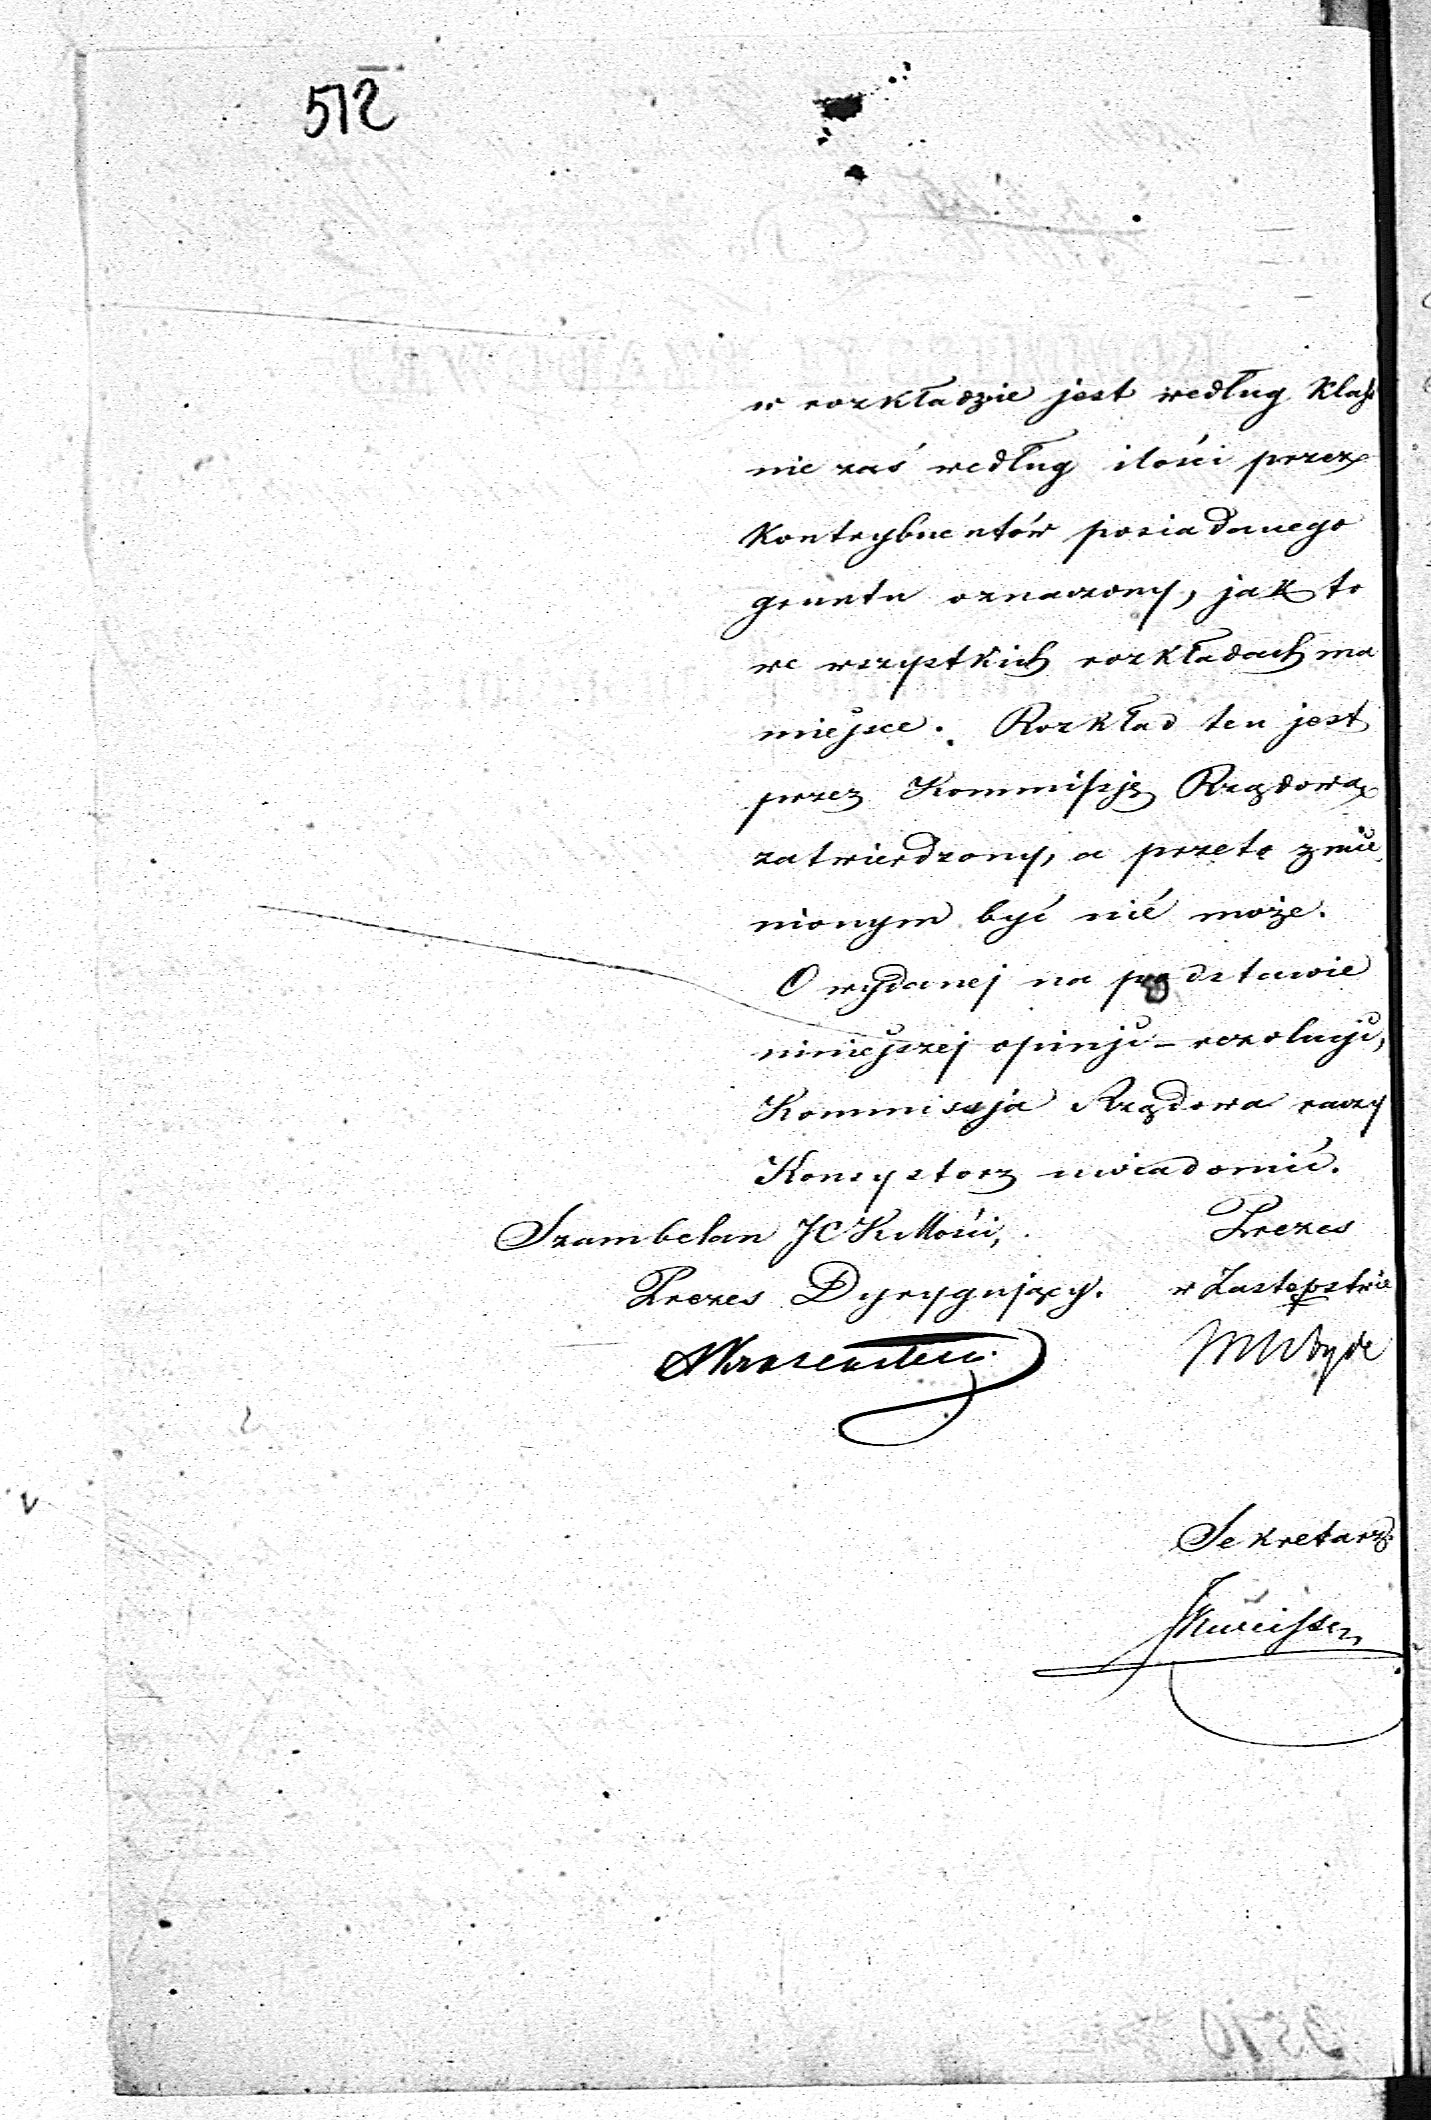 512
w rozkładzie jest według klass
nie zaś według ilości przez
Kontrybuentów posiadanego
gruntu oznaczony, jak to
we wszystkich rozkładach ma
miejsce. Rozkład ten jest
przez Kommissję Rządową
zatwierdzony, a przeto zmie
nionym być nie może.
O wydanej na podstawie
niniejszej opinji – rezolucji,
Kommissja Rządowa raczy
Konsystorz uwiadomić.
Szambelan JCK Mości, Prezes
Prezes Dyrygujący. w Zastępstwie
Sekretarz